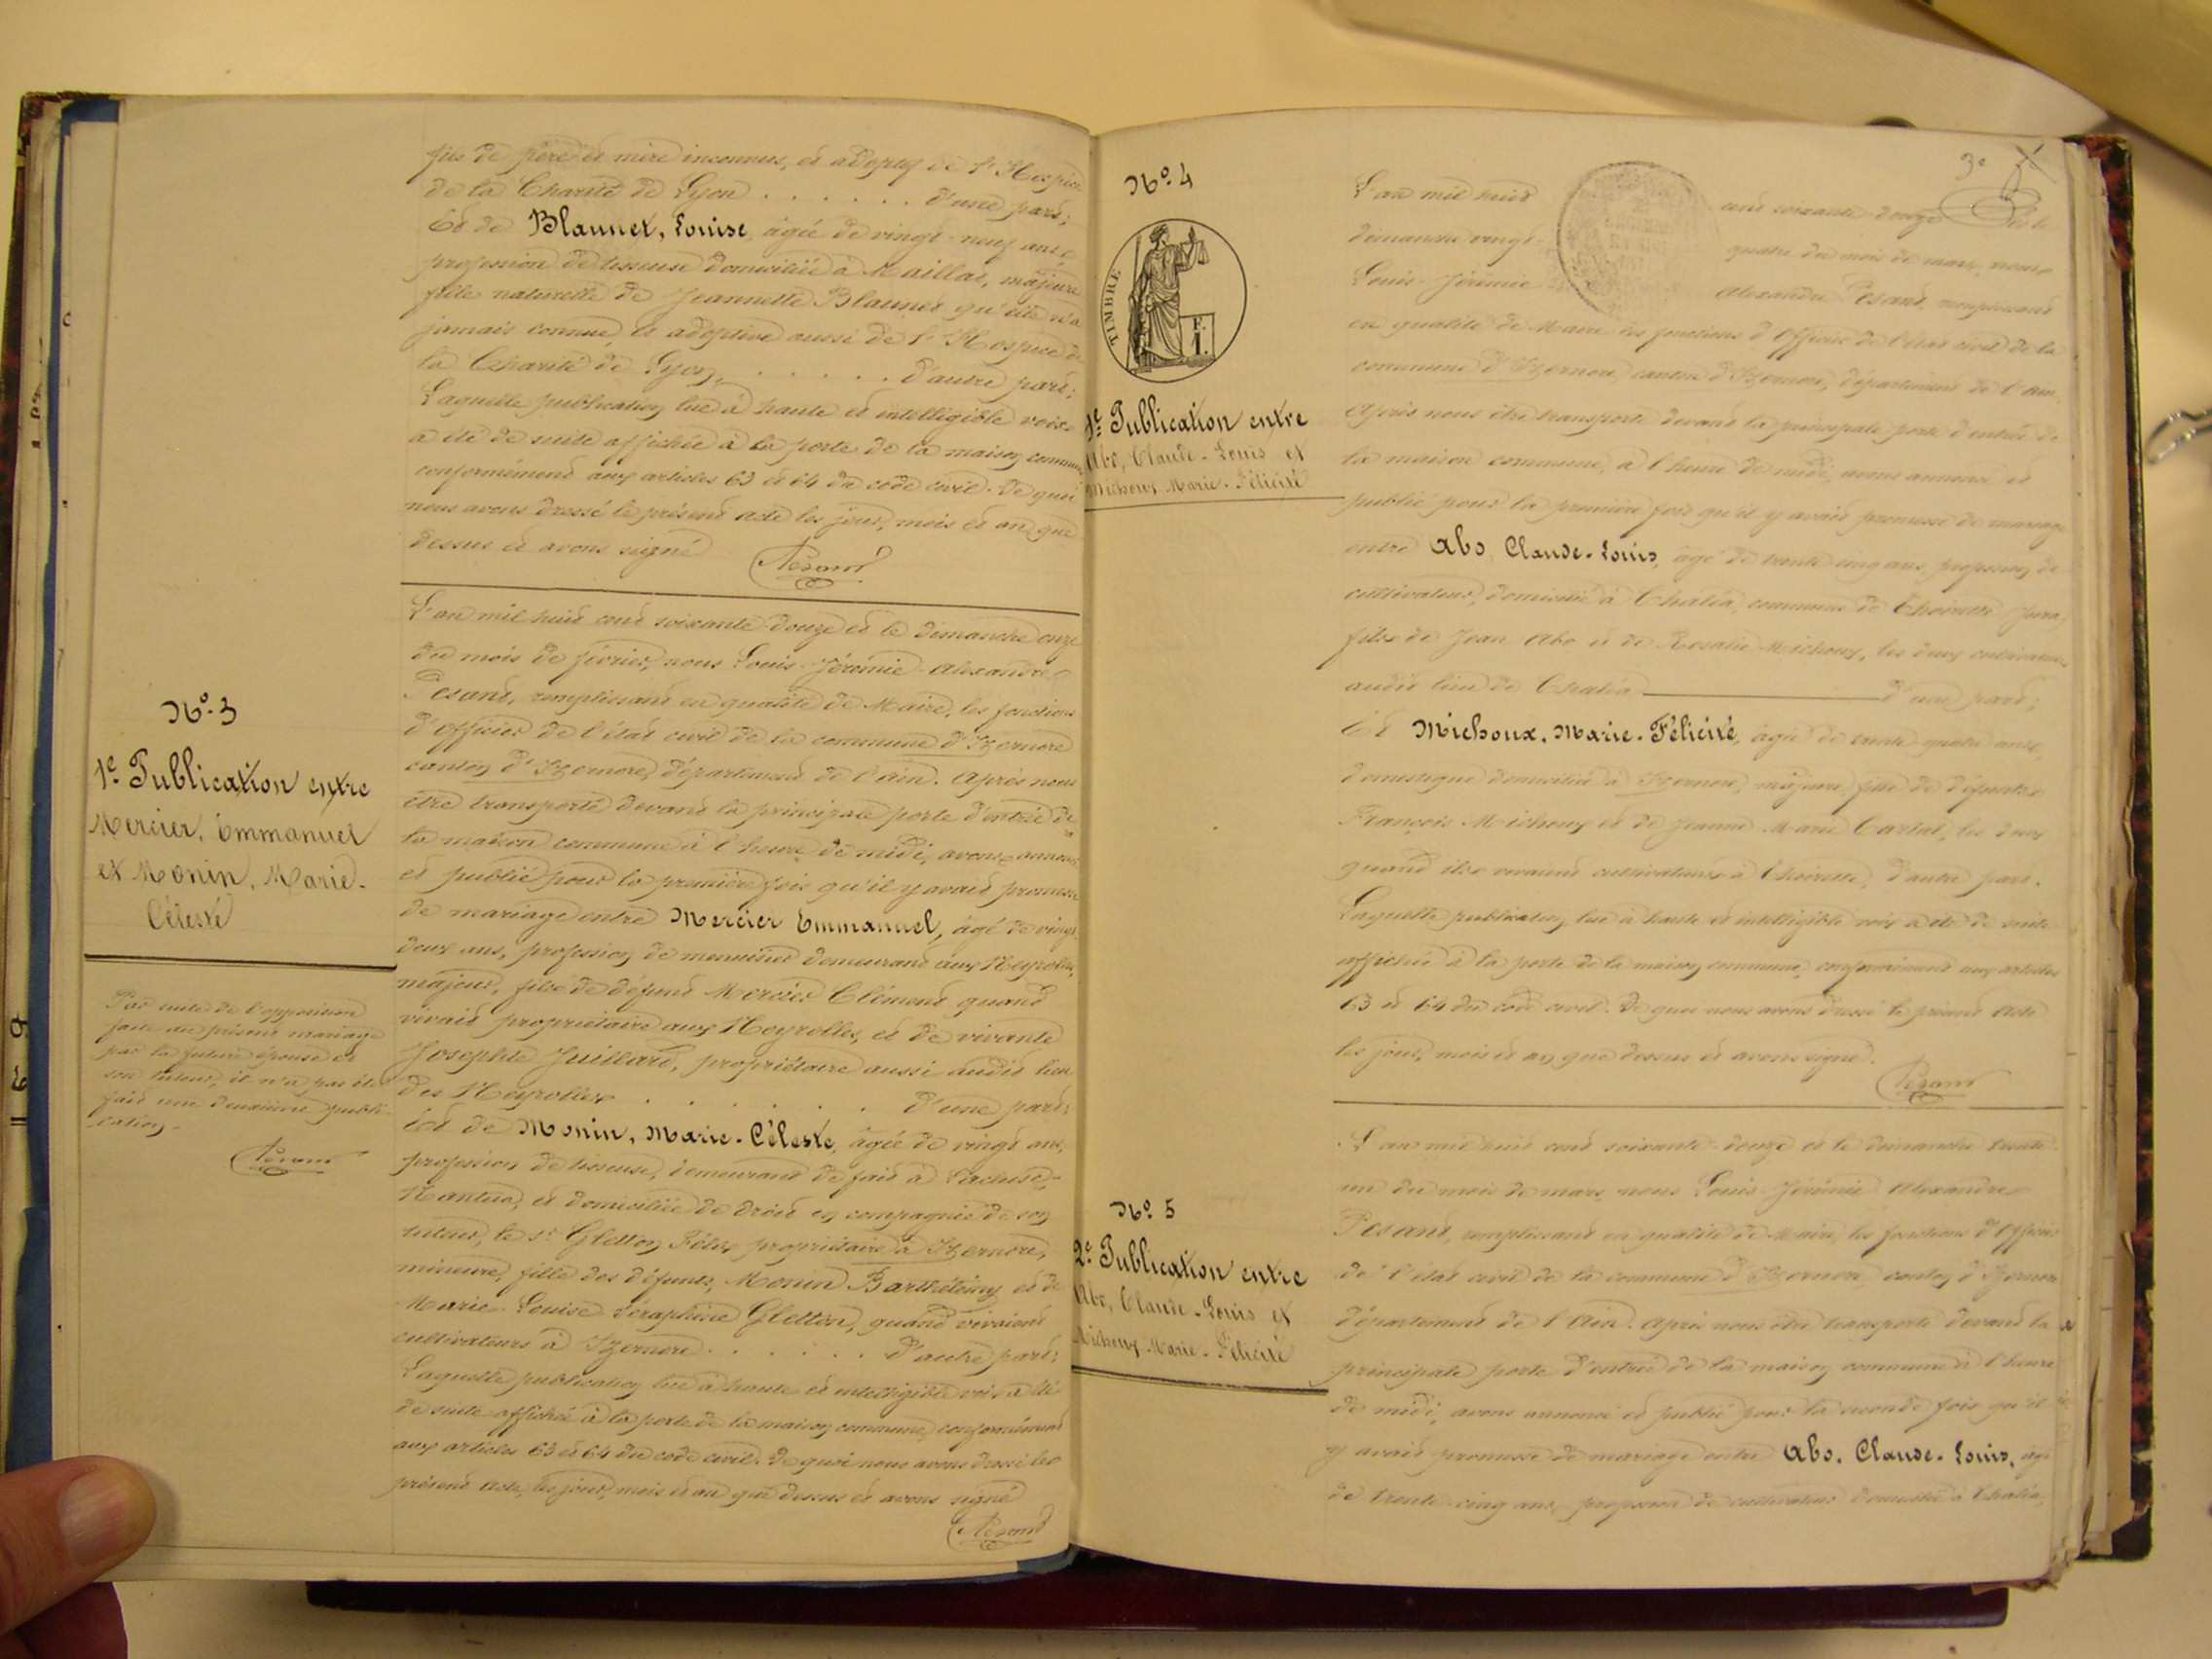 fils de père et mère inconnus, et adoptif de l'Hospice
de la Charité de Lyon . . . . . . d'une part;
Et de Blaunet, Louise, âgée de vingt-neuf ans,
profession de tisseuse domiciliée à Maillat, majeure
fille naturelle de Jeannette Blaunet qu'elle n'a
jamais connue, et adoptive aussi de l'Hospice de
la Charité de Lyon, . . . . . . d'autre part;
Laquelle publication lue à haute et intelligible voix
a été de suite affichée à la porte de la maison commune
conformément aux articles 63 et 64 du code civil. De quoi
nous avons dressé le présent acte les jour, mois et an que
dessus et avons signé
Pesant
N° 3
1e Publication entre
Mercier, Emmanuel
et Monin, Marie-
Céleste
Par suite de l'opposition
faite au présent mariage
par la future épouse et
son tuteur, il n'a pas été
fait une deuxième publi-
cation.
Pesant
L'an mil huit cent soixante-douze et le dimanche onze
du mois de février, nous Louis-Jérémie-Alexandre
Pesant, remplissant en qualité de Maire, les fonctions
d'Officier de l'état civil de la commune d'Izernore
canton d'Izernore, département de l'Ain. Après nous
être transporté devant la principale porte d'entrée de
la maison commune à l'heure de midi, avons annoncé
et publié pour la première fois qu'il y avait promesse
de mariage entre Mercier Emmanuel, âgé de vingt-
deux ans, profession de menuisier demeurant aux Neyrolles,
majeur, fils de défunt Mercier Clément quand
vivait propriétaire aux Neyrolles, et de vivante
Josephte Juillard, propriétaire aussi audit lieu
des Neyrolles . . . . . . d'une part;
Et de Monin, Marie-Céleste, âgée de vingt ans,
profession de tisseuse, demeurant de fait à Lacluse-
Nantua, et domiciliée de droit en compagnie de son
tuteur, le sr Gletton Félix propriétaire à Izernore,
mineure, fille des défunts, Monin Barthélémy et de
Marie-Louise Séraphine Gletton, quand vivaient
cultivateurs à Izernore . . . . . . d'autre part;
Laquelle publication lue à haute et intelligible voix a été
de suite affichée à la porte de la maison commune, conformément
aux articles 63 et 64 du code civil. De quoi nous avons dressé le
présent acte, les jour, mois et an que dessus et avons signé
Pesant
3e
N° 4
TIMBRE
F.
1.
1e Publication entre
Abo, Claude-Louis et
Michoux Marie-Félicité
L'an mil huit cent soixante-douze et le
dimanche vingt-quatre du mois de mars, nous
Louis-Jérémie Alexandre Pesant, remplissant
en qualité de Maire les fonctions d'Officier de l'état civil de la
commune d'Izernore, canton d'Izernore, département de l'Ain.
Après nous être transporté devant la principale porte d'entrée de
la maison commune, à l'heure de midi, avons annoncé et
publié pour la première fois qu'il y avait promesse de mariage
entre Abo Claude-Louis, âgé de trente cinq ans, profession de
cultivateur, domicilié à Chaléa, commune de Thoirette Jura,
fils de Jean Abo et de Rosalie Michoux, les deux cultivateurs
audit lieu de Chaléa d'une part;
Et Michoux, Marie-Félicité, âgée de trente quatre ans,
domestique domiciliée à Izernore, majeure, fille de défunts
François Michoux et de Jeanne Marie Cartal, les deux
quand ils vivaient cultivateurs à Thoirette, d'autre part.
Laquelle publication lue à haute et intelligible voix a été de suite
affichée à la porte de la maison commune, conformément aux articles
63 et 64 du code civil. De quoi nous avons dressé le présent acte
les jour, mois et an que dessus et avons signé.
Pesant
N° 5
2e Publication entre
Abo, Claude-Louis et
Michoux Marie-Félicité
L'an mil huit cent soixante-douze et le dimanche trente-
un du mois de mars, nous Louis-Jérémie Alexandre
Pesant, remplissant en qualité de Maire, les fonctions d'Officier
de l'état civil de la commune d'Izernore canton d'Izernore
département de l'Ain. Après nous être transporté devant la
principale porte d'entrée de la maison commune à l'heure
de midi, avons annoncé et publié pour la seconde fois qu'il
y avait promesse de mariage entre Abo, Claude-Louis, âgé
de trente-cinq ans, profession de cultivateur domicilié à Chaléa,